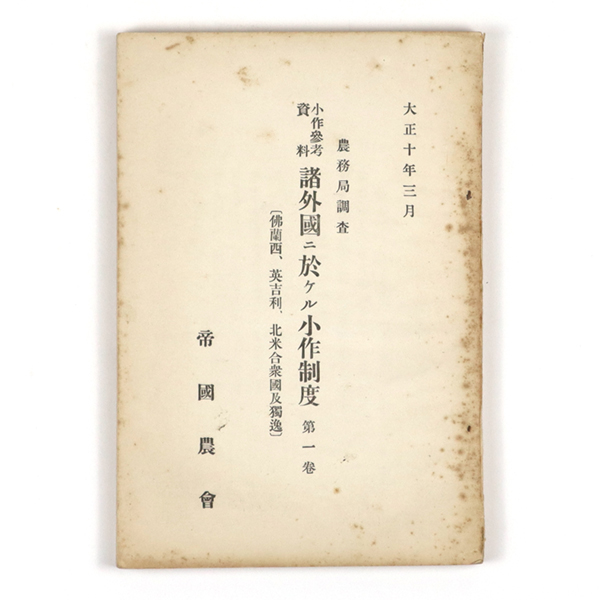 大正十年三月
農務局調査
小作參考資料 諸外國ニ於ケル小作制度 第一卷
〔佛蘭西、英吉利、北米合衆國及獨逸〕
帝國農會